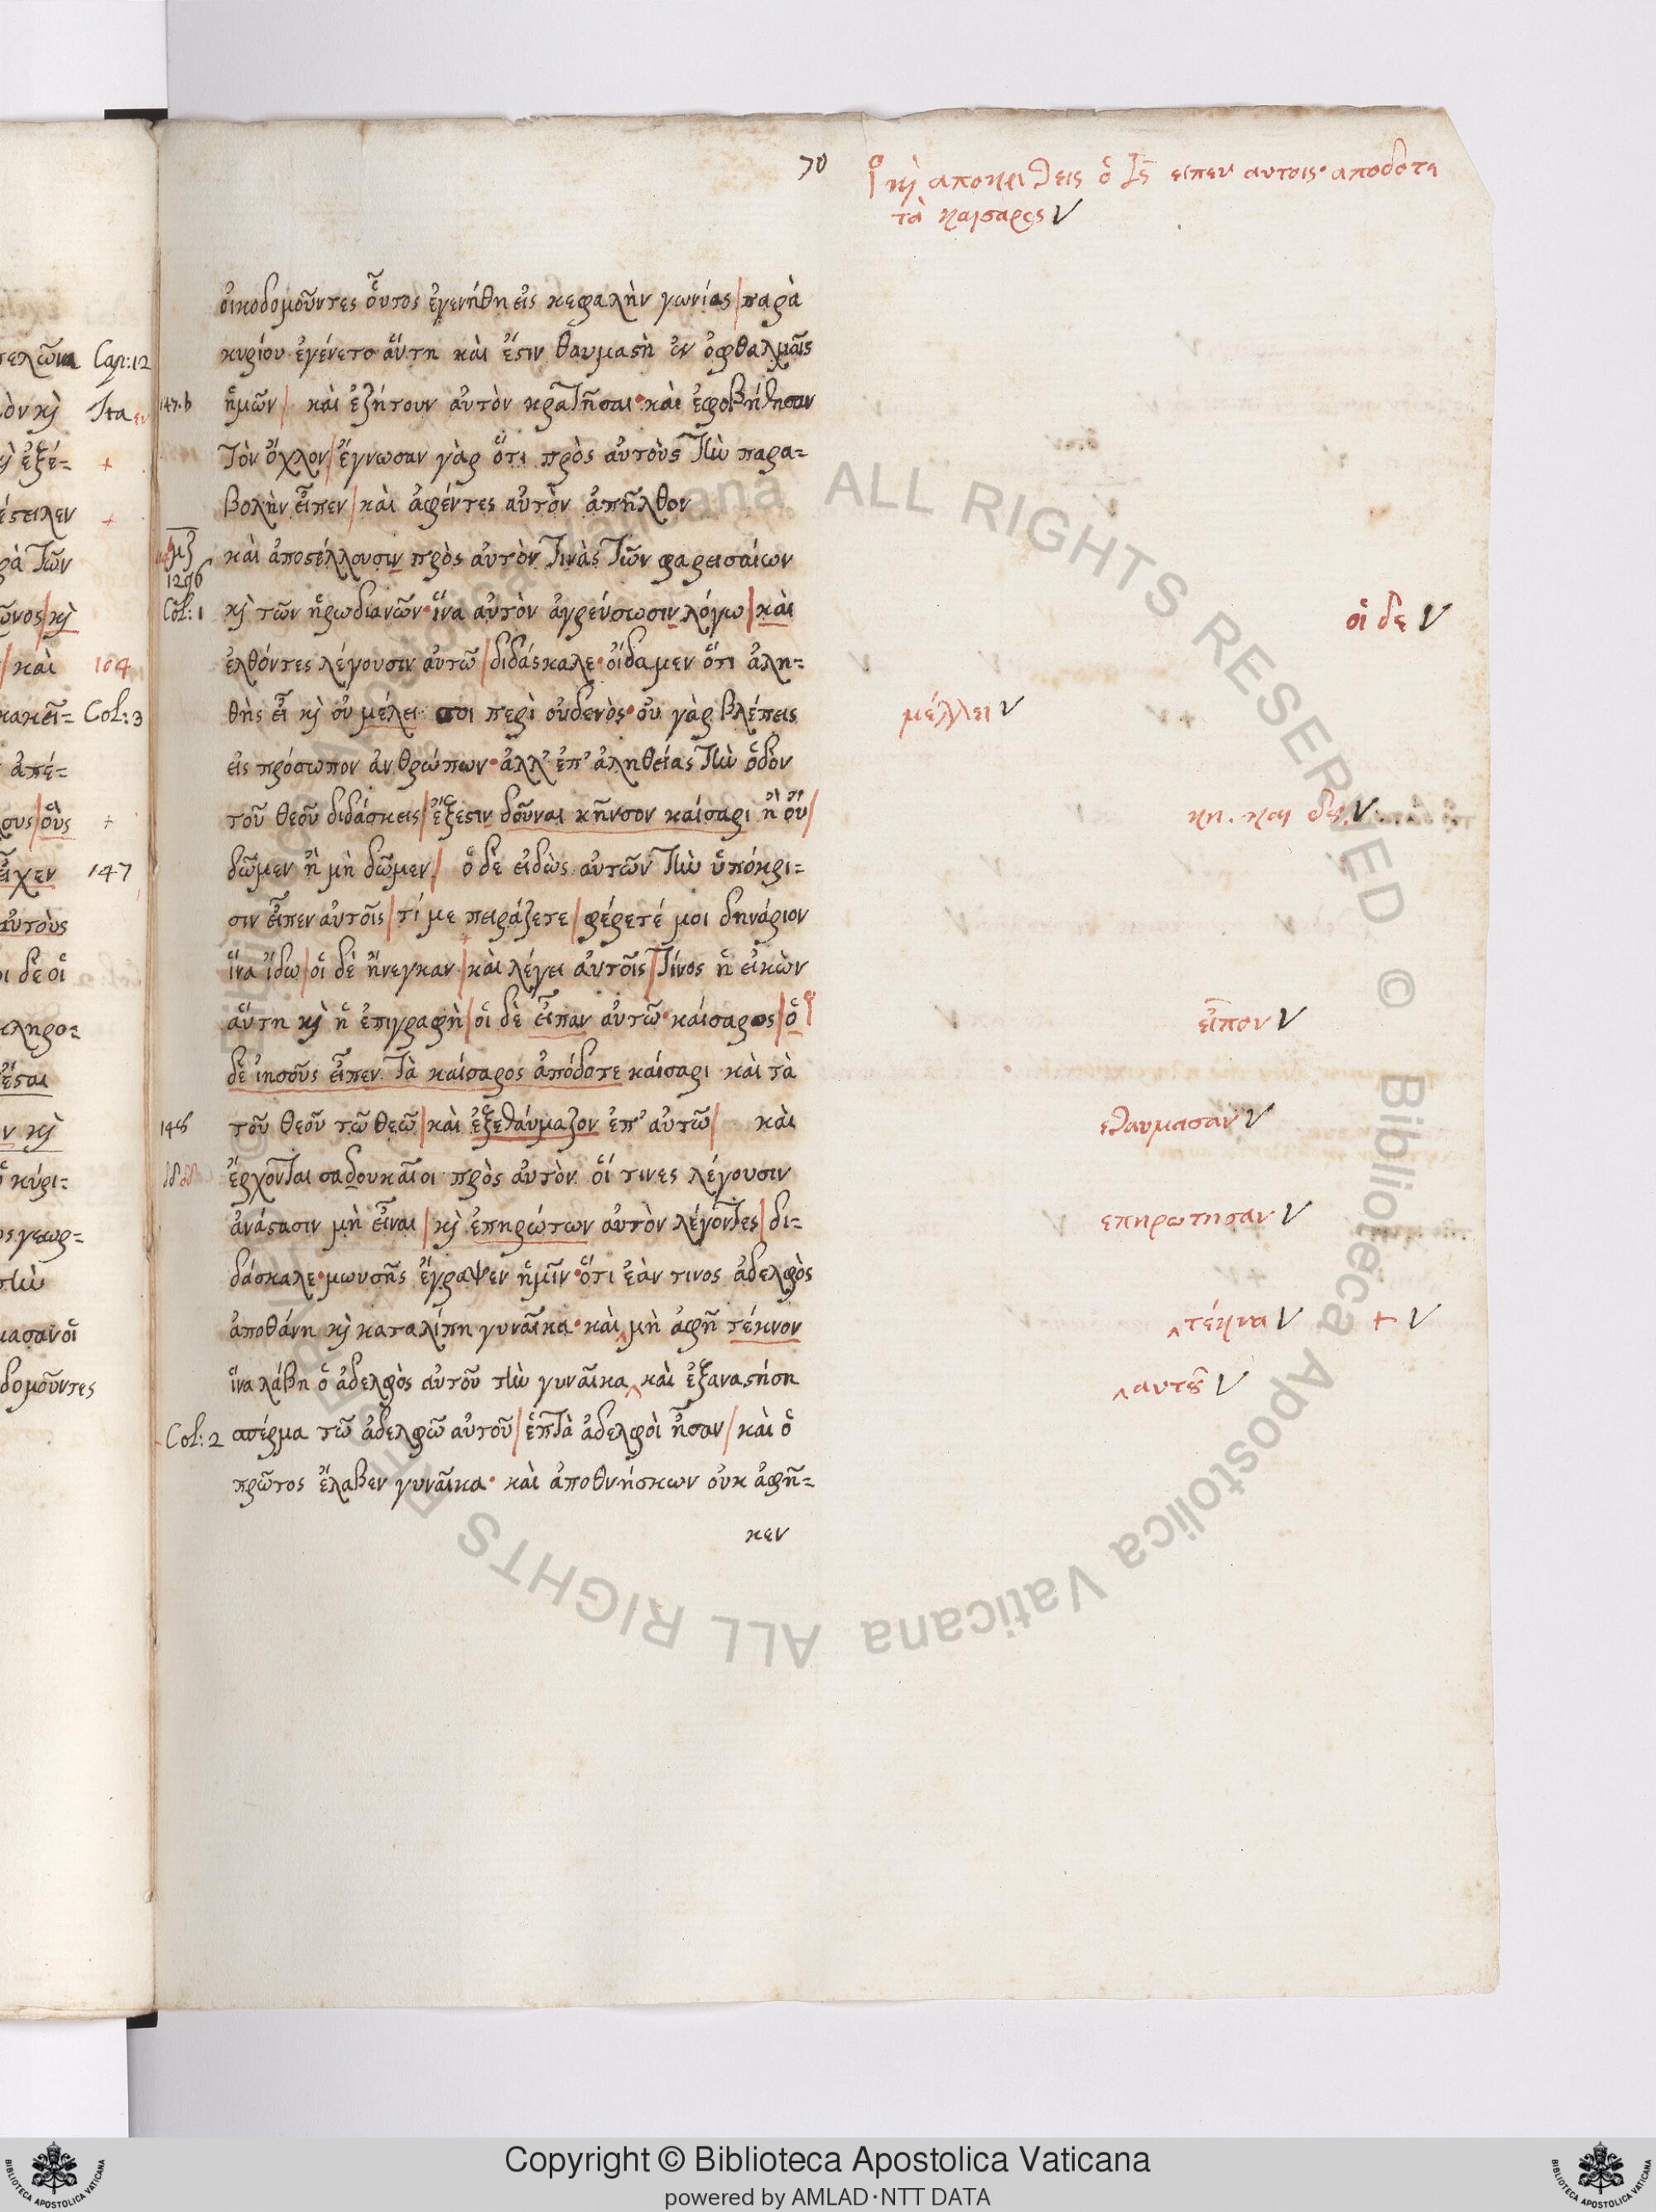 70
ỉ κỳ αποκριθεις ὁ Ἰς ειπεν αυτοις· αποδοτε
τὰ καισαρος V
οἰκοδομοῦντες οὗτος ἐγενήθη εἰς κεφαλὴν γωνίας / παρὰ
κυρίου ἐγένετο αὕτη καὶ ἔστιν θαυμαστὴ ἐν ὀφθαλμοῖς
147.b ἡμῶν / καὶ ἐζήτουν αὐτὸν κρατῆσαι· καὶ ἐφοβήθησαν
τὸν ὄχλον / ἔγνωσαν γὰρ ὅτι πρὸς αὐτοὺς τὴν παρα=
βολὴν εἶπεν / καὶ ἀφέντες αὐτὸν ἀπῆλθον
καὶ ἀποστέλλουσιν πρὸς αὐτὸν τινὰς τῶν φαρεισαίων
1296
Col: 1 κὶ τῶν ἡρωδιανῶν· ἵνα αὐτὸν ἀγρεύσωσιν λόγω / καὶ οἱ δε V
ἐλθόντες λέγουσιν αὐτῶ / διδάσκαλε· οἴδαμεν ὅτι ἀλη=
θὴς εἶ κὶ οὐ μέλει σοι περὶ οὐδενὸς· οὐ γὰρ βλέπεις μέλλει V
εἰς πρόσωπον ἀνθρώπων· ἀλλ' ἐπ' ἀληθείας τὴν ὁδὸν
τοῦ θεοῦ διδάσκεις / ἔξεστιν δοῦναι κῆνσον καίσαρι ἢ οὔ / κη. και δι. V
δῶμεν ἢ μὴ δῶμεν / ὁ δὲ εἰδὼς αὐτῶν τὴν ὑπόκρι=
σιν εἶπεν αὐτοῖς / τί με πειράζετε / φέρετέ μοι δηνάριον
ἵνα ἴδω / οἱ δὲ ἤνεγκαν / καὶ λέγει αὐτοῖς / τίνος ἡ εἰκὼν
αὕτη κὶ ἡ ἐπιγραφὴ / οἱ δὲ εἶπαν αὐτῶ· καίσαρος / ὁ εἶπον V
δὲ ἰησοῦς εἶπεν τὰ καίσαρος ἀπόδοτε καίσαρι καὶ τὰ
148 τοῦ θεοῦ τῶ θεῶ / καὶ ἐξεθαύμαζον ἐπ' αὐτῶ / καὶ εθαυμασαν V
ἔρχονται σαδουκαῖοι πρὸς αὐτὸν οἵ τινες λέγουσιν
ἀνάστασιν μὴ εἶναι / κὶ ἐπηρώτων αὐτὸν λέγοντες / δι= επηρωτησαν V
δάσκαλε· μωυσῆς ἔγραψεν ἡμῖν· ὅτι ἐάν τινος ἀδελφὸς
ἀποθάνη κὶ καταλίπη γυναῖκα· καὶ ‸ μὴ ἀφῆ τέκνον ‸ τέκνα V + V
ἵνα λάβη ὁ ἀδελφὸς αὐτοῦ τὴν γυναῖκα ‸ καὶ ἐξαναστήση ‸ αυτȣ V
Col: 2 σπέρμα τῶ ἀδελφῶ αὐτοῦ / ἑπτὰ ἀδελφοὶ ἦσαν / καὶ ὁ
πρῶτος ἔλαβεν γυναῖκα· καὶ ἀποθνήσκων οὐκ ἀφῆ=
κεν
Cap: 12
Col: 3
147
δομοῦντες
ALL RIGHTS RESERVED © Biblioteca Apostolica Vaticana
Copyright © Biblioteca Apostolica Vaticana
powered by AMLAD·NTT DATA